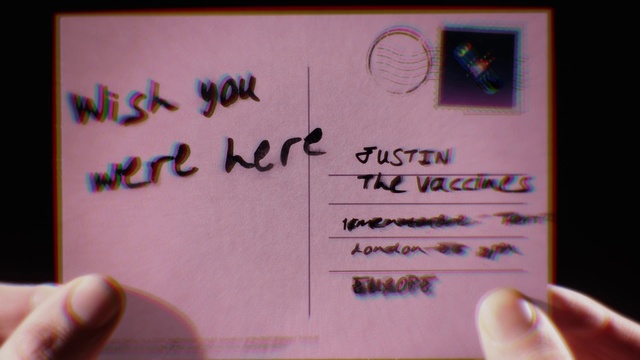 Wish you
were here
JUSTIN
The Vaccines
London
EUROPE